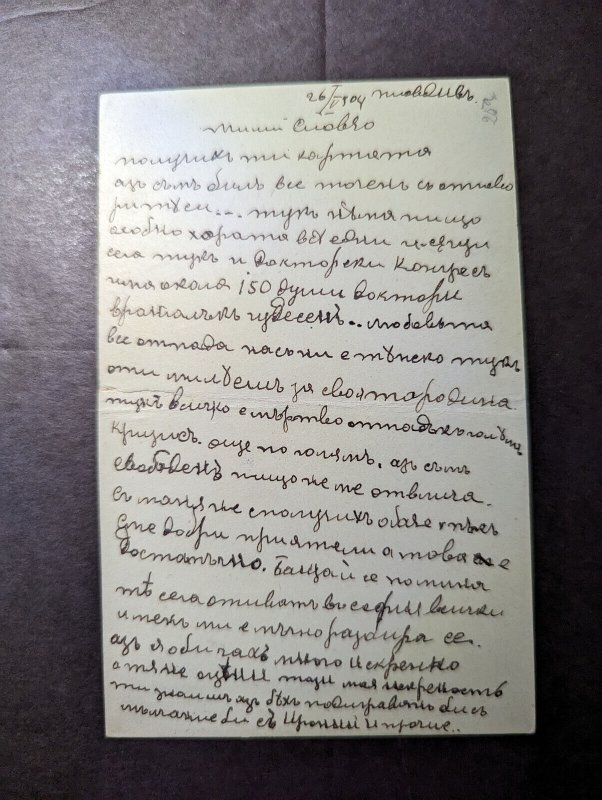 26/V 904 Пловдивъ.
Милий Славчо
получихъ ти картата
азъ съмъ билъ все точенъ съ отгово
ритѣ си... тукъ нѣма нищо
особно хората все едни и сѫщи
сега тукъ и Докторски Конгресъ
има около 150 души доктори
... чудесенъ.. любовьта
все отпада насъни е тѣпско тукъ
оти милѣешъ за своята родина.
тукъ всичко е мъртво отпадъкъ голѣмъ
Кризисъ. още по голямъ. азъ съмъ
свободенъ нищо не ме отвлича.
съ ... не сполучихъ обаче ...
сме добри приятели а това не е
достатъчно. Баща й се помина
тѣ сега отиватъ въ София всички
и менъ ми е мѫчно разбира се.
азъ я обичахъ много искренно
а тя не оцѣни тази моя искреность
ти знаешъ азъ бѣхъ ... би съ
мълчание би съ Ирония и прочие..